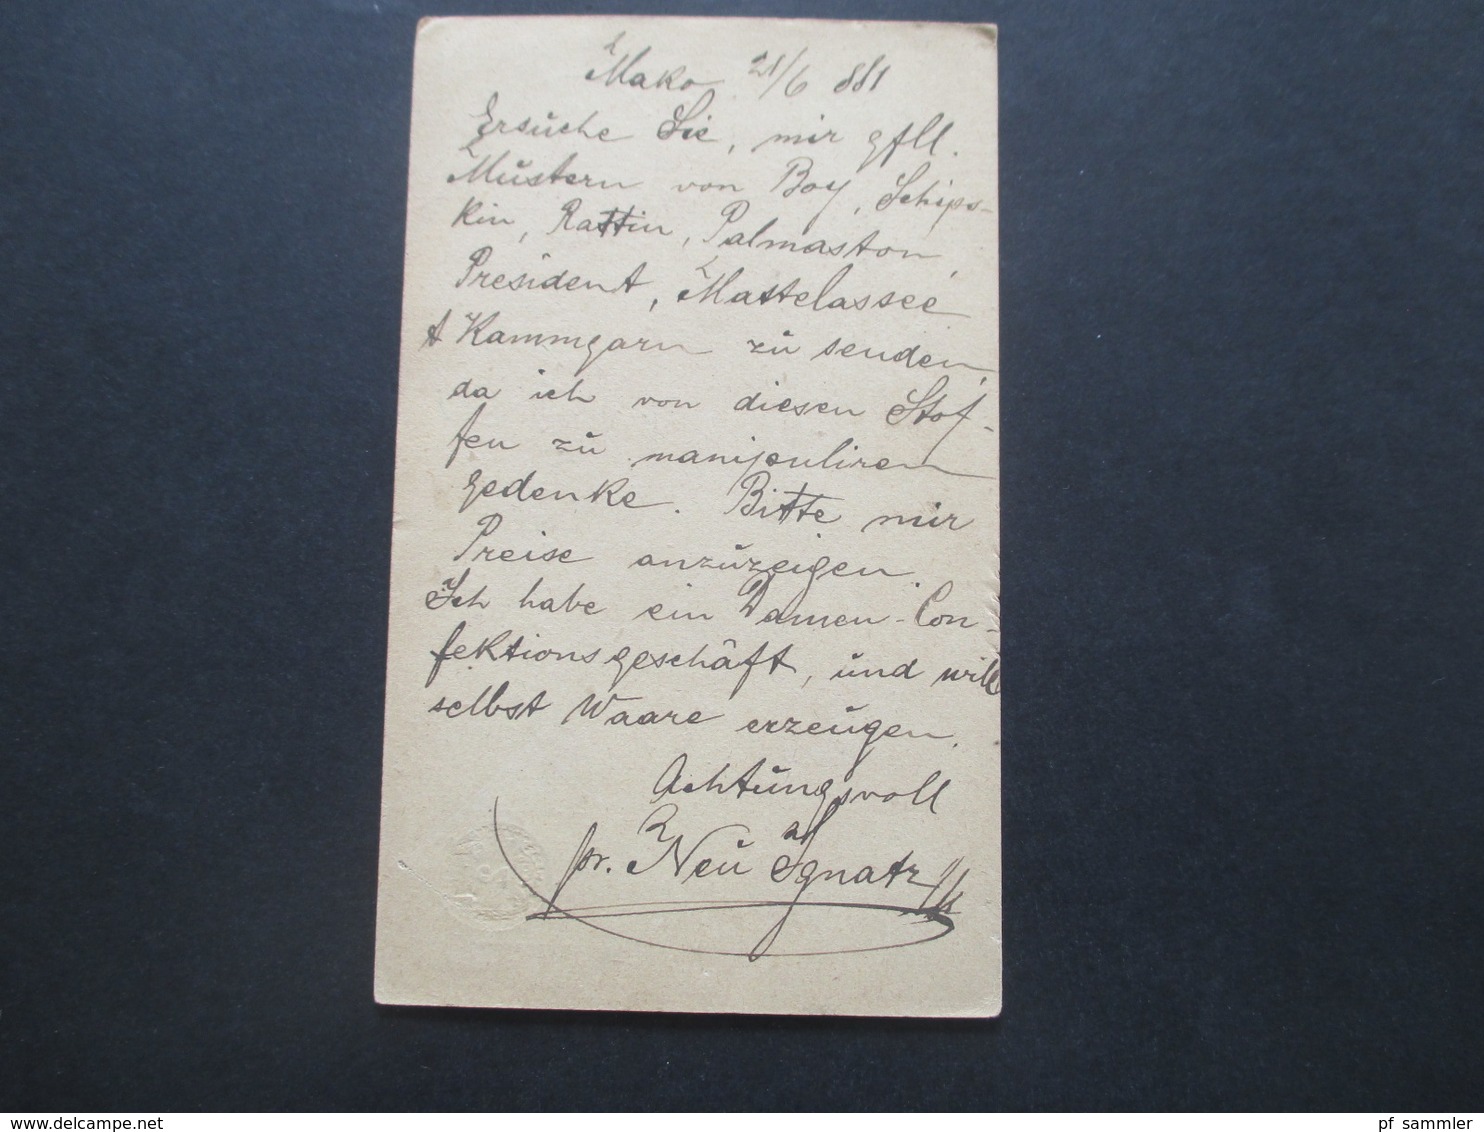 Mako 21/6 881
Ersuche Sie, mir gfll.
Mustern von Boy, Schips-
kin, Rattin, Palmaston,
President, Mattelassee
& Kammgarn zu senden,
da ich von diesen Stof-
fen zu manipuliren
gedenke. Bitte mir
Preise anzuzeigen.
Ich habe ein Damen-Con-
fektionsgeschäft, und will
selbst Waare erzeugen.
Achtungsvoll
pr. Neu Ignatz
pf_sammler